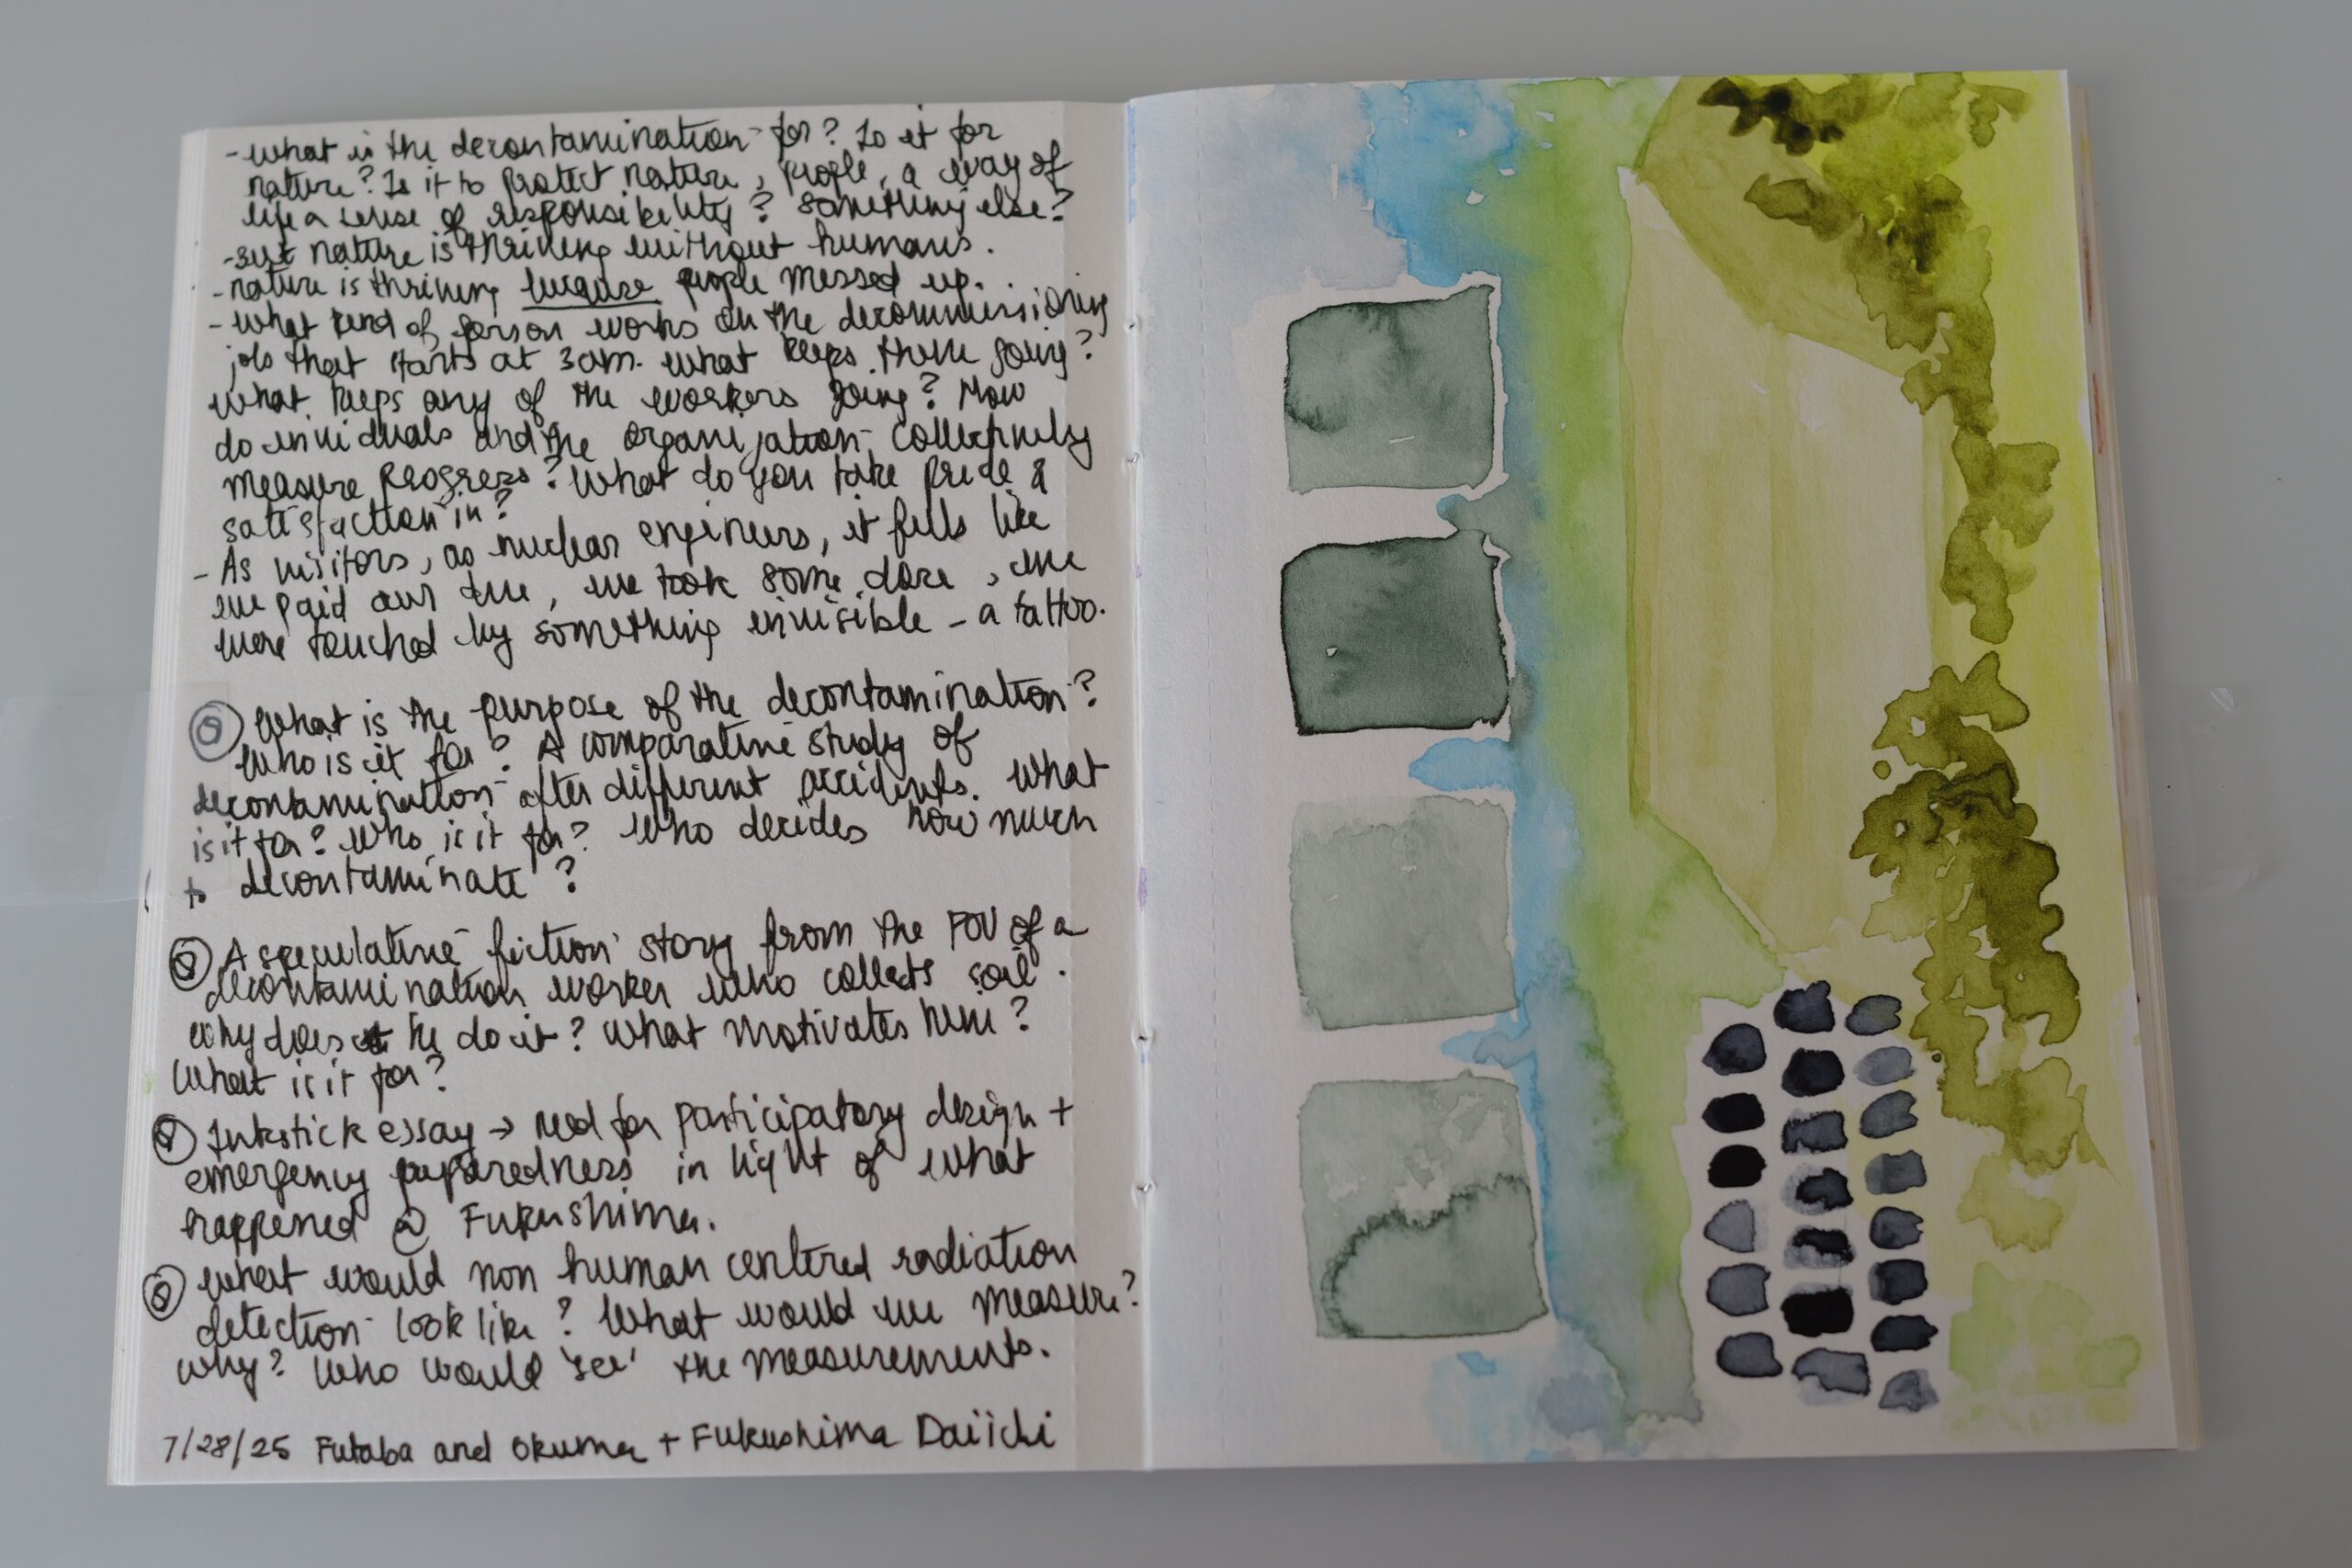 - What is the decontamination for? Is it for
nature? Is it to protect nature, people, a way of
life a sense of responsibility? Something else?
- but nature is thriving without humans.
- nature is thriving because people messed up.
- what kind of person works on the decommissioning
job that starts at 3am. what keeps them going?
what keeps any of the workers going? How
do individuals and the organization collectively
measure progress? What do you take pride &
satisfaction in?
- As visitors, as nuclear engineers, it feels like
we paid our due, we took some dose, we
were touched by something invisible - a tattoo.
What is the purpose of the decontamination?
Who is it for? A comparative study of
decontamination after different accidents. What
is it for? Who is it for? Who decides how much
to decontaminate?
A speculative fiction story from the POV of a
decontamination worker who collects soil.
why does he do it? What motivates him?
What is it for?
Inkstick essay → need for participatory design +
emergency preparedness in light of what
happened @ Fukushima.
What would non human centered radiation
detection look like? What would we measure?
Why? Who would 'see' the measurements.
7/28/25 Futaba and Okuma + Fukushima Daiichi